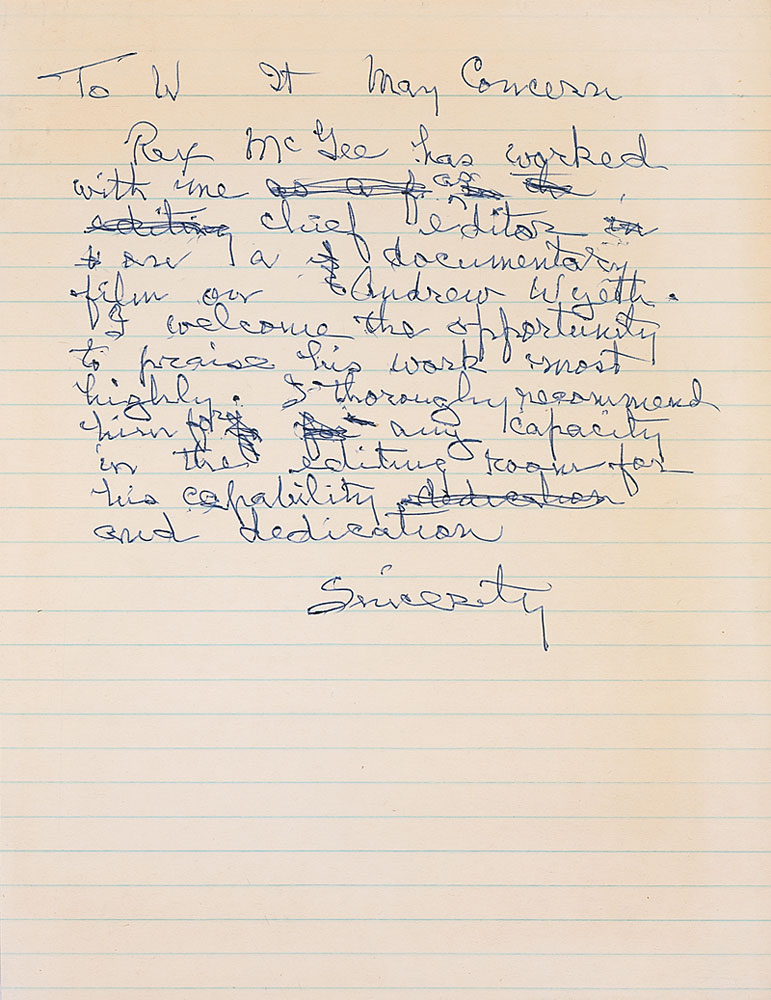 To W It May Concern
Rex McGee has worked
with me as a f as
editing chief editor in
on a documentary
film on Andrew Wyeth.
I welcome the opportunity
to praise his work most
highly. I thoroughly recommend
him for any capacity
in the editing room for
his capability dedication
and dedication
Sincerity